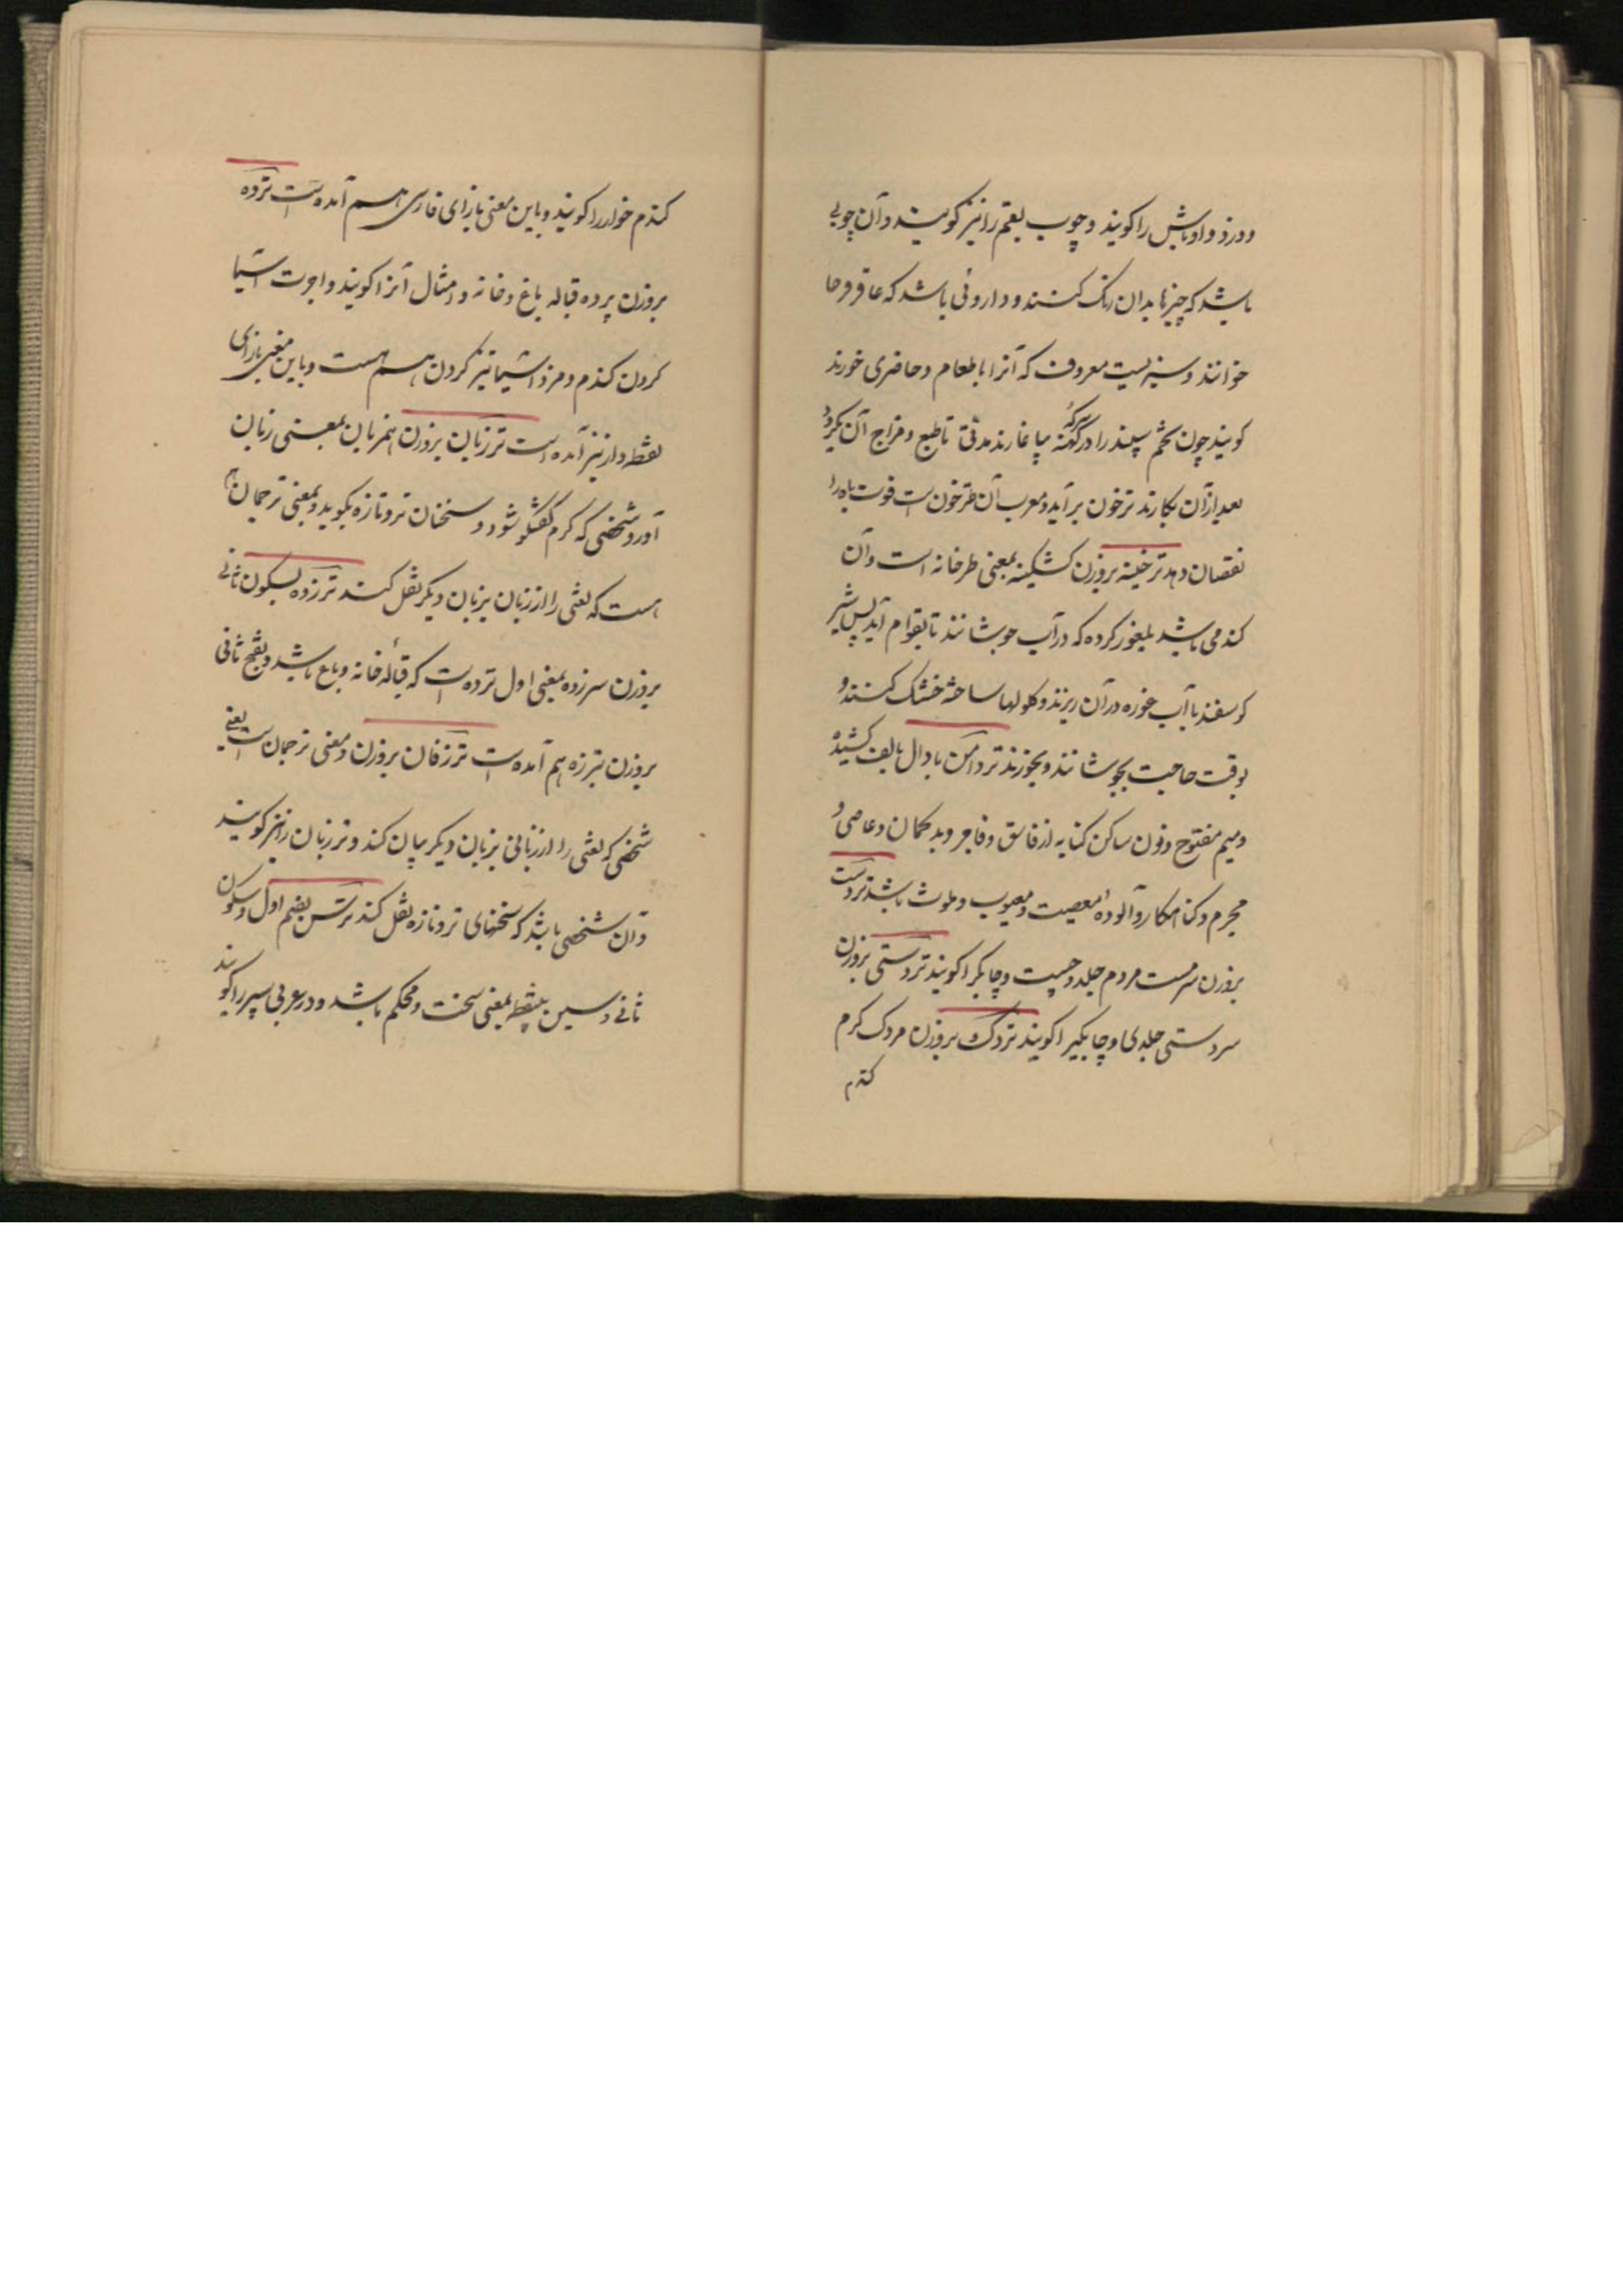 ودزد و اوباش را کویند و چوب بقم را نیز کویند و آن چوبی
باشد که چیزها بدان رنک کنند و داروئی باشد که عاقرقرحا
خوانند و سبزیست معروف که آنرا با طعام و حاضری خورند
کویند چون تخم سپند را در سرکهٔ کهنه بیاغارند مدتی تا طبع و مزاج آن بکردد
بعد از آن بکارند ترخون برآید و معرب آن طرخون است قوت باه را
نقصان دهد ترخینه بروزن کشکینه بمعنی طرخانه است و آن
کندمی باشد بلغور کرده که در آب جوشانند تا بقوام آید پس شیر
کوسفند یا آب غوره در آن ریزند و کلولها ساخته خشک کنند و
بوقت حاجت بجوشانند و بخورند تردامن با دال بالف کشیده
و میم مفتوح و نون ساکن کنایه از فاسق و فاجر و بدکمان و عاصی و
مجرم و کناهکار و آلودهٔ معصیت و معیوب و ملوث باشد تردست
بروزن سرمست مردم جلد و چست و چابک را کویند تردستی بروزن
سردستی جلدی و چابکی را کویند تردک بروزن مردک کرم
کندم
کندم خوار را کویند و باین معنی بازای فارسی هم آمده است ترده
بروزن پرده قباله باغ و خانه و امثال آنرا کویند و اجرت آسیا
کردن کندم و مزد آسیا تیز کردن هم هست و باین معنی بازای
نقطه دار نیز آمده است ترزبان بروزن همزبان بمعنی زبان
آور و شخصی که کرم کفتکو شود و سخنان تروتازه بکوید و بمعنی ترجمان هم
هست که لغتی را از زبان بزبان دیکر نقل کند ترزده بسکون ثانی
بروزن سرزده بمعنی اول ترده است که قبالهٔ خانه و باغ باشد و بفتح ثانی
بروزن تبرزه هم آمده است ترزفان بروزن و معنی ترجمان است یعنی
شخصی که لغتی را از زبانی بزبان دیکر بیان کند و ترزبان را نیز کویند
و آن شخصی باشد که سخنهای تروتازه نقل کند ترس بضم اول و سکون
ثانی و سین بی نقطه بمعنی سخت و محکم باشد و در عربی سپر را کویند